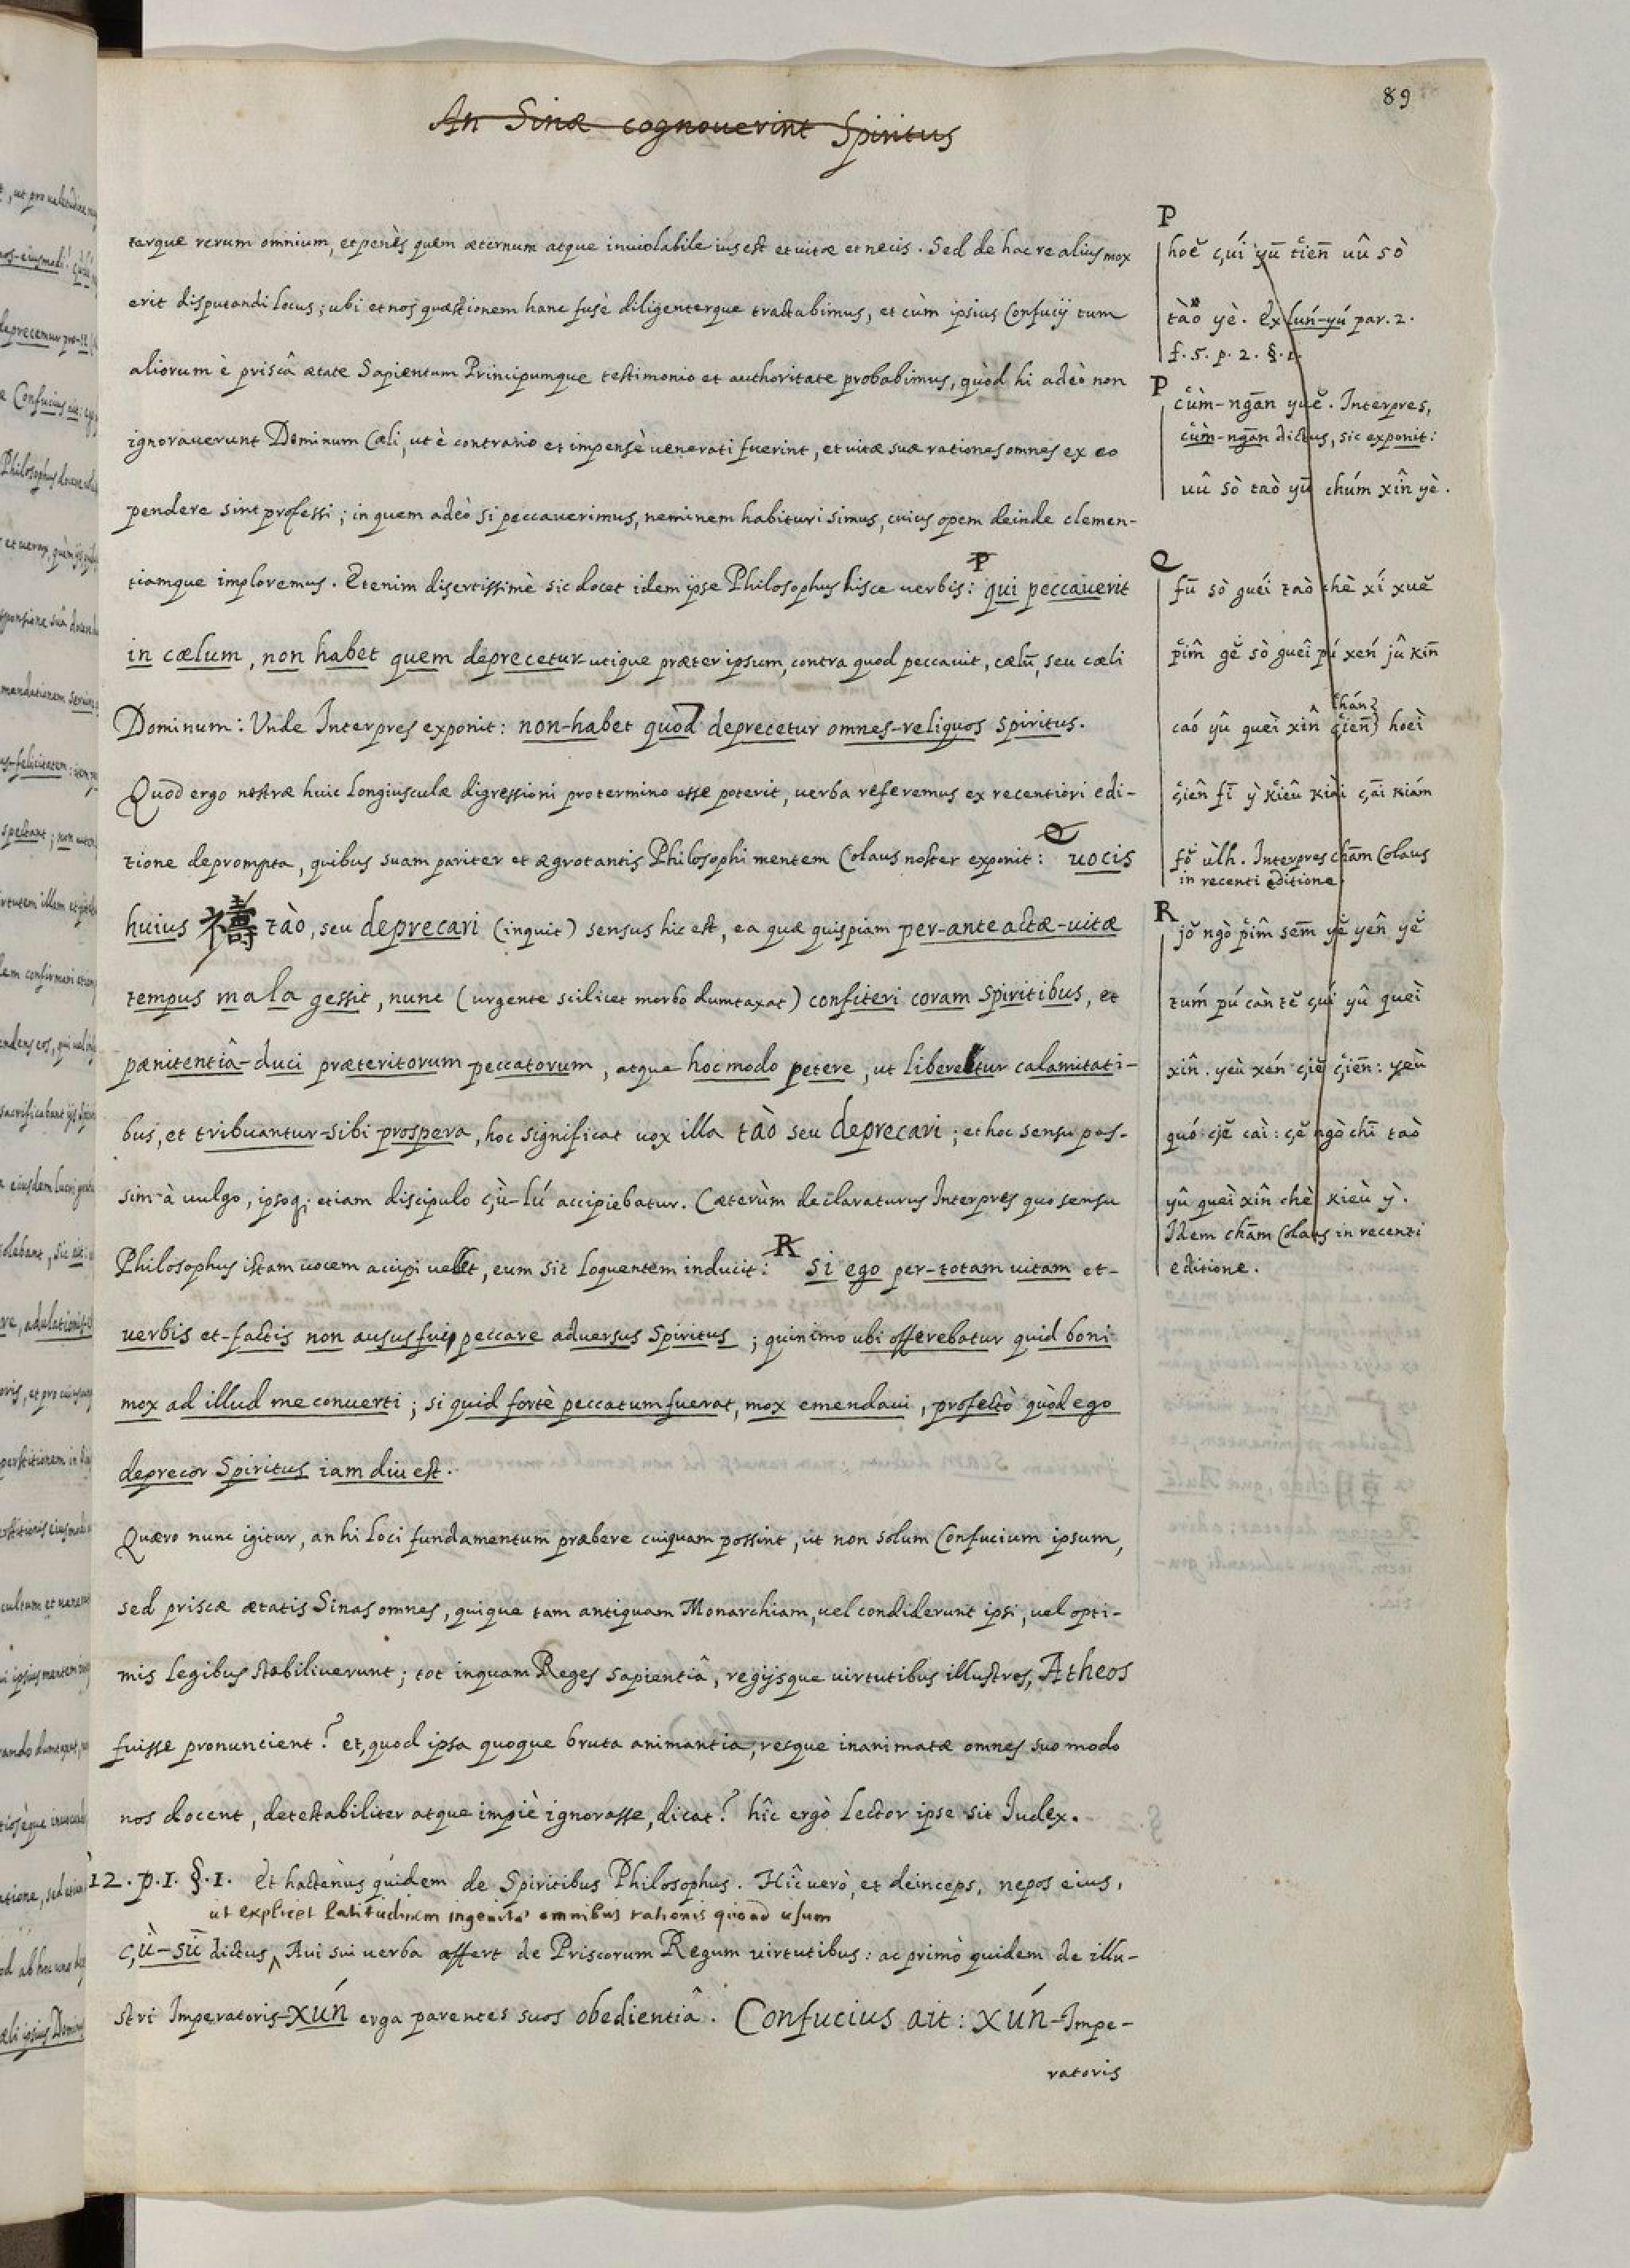 89
An Sinæ cognouerint Spiritus
terque rerum omnium, et penès quem æternum atque inuiolabile ius est et uitæ et necis. Sed de hac re alius mox
erit disputandi locus; ubi et nos quæstionem hanc fusè diligenterque tractabimus, et cùm ipsius Confucij tum
aliorum è priscâ ætate Sapientum Principumque testimonio et authoritate probabimus, quòd hi adeò non
ignorauerunt Dominum Cæli, ut è contrario et impensè uenerati fuerint, et uitæ suæ rationes omnes ex eo
pendere sint professi; in quem adeò si peccauerimus, neminem habituri simus, cuius opem deinde clemen-
tiamque imploremus. Etenim disertissimè sic docet idem ipse Philosophus hisce uerbis: P qui peccauerit
in cælum, non habet quem deprecetur utique præter ipsum, contra quod peccauit, cælū, seu cæli
Dominum: Vnde Interpres exponit: non-habet quod deprecetur omnes-reliquos spiritus.
Quod ergo nostræ huic longiusculæ digressioni pro termino esse poterit, uerba referemus ex recentiori edi-
tione deprompta, quibus suam pariter et ægrotantis Philosophi mentem Colaus noster exponit: Q uocis
huius 禱 tào, seu deprecari (inquit) sensus hic est, ea quæ quispiam per-anteactæ-uitæ
tempus mala gessit, nunc (urgente scilicet morbo dumtaxat) confiteri coram Spiritibus, et
pænitentiâ-duci præteritorum peccatorum, atque hoc modo petere, ut liberetur calamitati-
bus, et tribuantur-sibi prospera, hoc significat uox illa tào seu deprecari; et hoc sensu pas-
sim à uulgo, ipsoq; etiam discipulo çù-lú accipiebatur. Cæterùm declaraturus Interpres quo sensu
Philosophus istam uocem accipi uellet, eum sic loquentem inducit: R si ego per-totam uitam et-
uerbis et-factis non ausus fui peccare aduersus Spiritus; quinimo ubi offerebatur quid boni
mox ad illud me conuerti; si quid fortè peccatum fuerat, mox emendaui, profectò quòd ego
deprecor Spiritus iam diu est.
Quæro nunc igitur, an hi loci fundamentum præbere cuiquam possint, ut non solum Confucium ipsum,
sed priscæ ætatis Sinas omnes, quique tam antiquam Monarchiam, uel condiderunt ipsi, uel opti-
mis legibus stabiliuerunt; tot inquam Reges sapientiâ, regijsque uirtutibus illustres, Atheos
fuisse pronunciet? et, quod ipsa quoque bruta animantia, resque inanimatæ omnes suo modo
nos docent, detestabiliter atque impiè ignorasse, dicat? hîc ergò Lector ipse sit Iudex.
12. p. 1. §. 1. Et hactenùs quidem de Spiritibus Philosophus. Hîc uerò, et deinceps, nepos eius,
ut explicet latitudinem ingenitæ omnibus rationis quoad usum
çù-sū dictus, Aui sui uerba affert de Priscorum Regum uirtutibus: ac primò quidem de illu-
stri Imperatoris-Xún erga parentes suos obedientiâ. Confucius ait: Xún-Impe-
ratoris
P
hoĕ çúi yū tiēn uû sò
tào yè. Ex Lún-yú par. 2.
f. 5. p. 2. §. 1.
P
cùm-ngān yuĕ. Interpres,
cùm-ngān dictus, sic exponit:
uû sò taò yū chúm xîn yè.
Q
fū sò guéi taò chè xí xuĕ
pîm gĕ sò guêi pú xén jû kīn
chán
caó yû quèi xîn çiēn hoèi
çiên fī ỳ kiêu kiài çāi kiám
fŏ ùlh. Interpres chām Colaus
in recenti editione.
R
jŏ ngò pîm sēm yĕ yên yĕ
túm pú càn tĕ çúi yû quèi
xîn. yeù xén çiĕ çiēn: yeù
quó çiĕ caì: çĕ ngò chī taò
yû quèi xîn chè kieù ỳ.
Idem chām Colaus in recenti
editione.